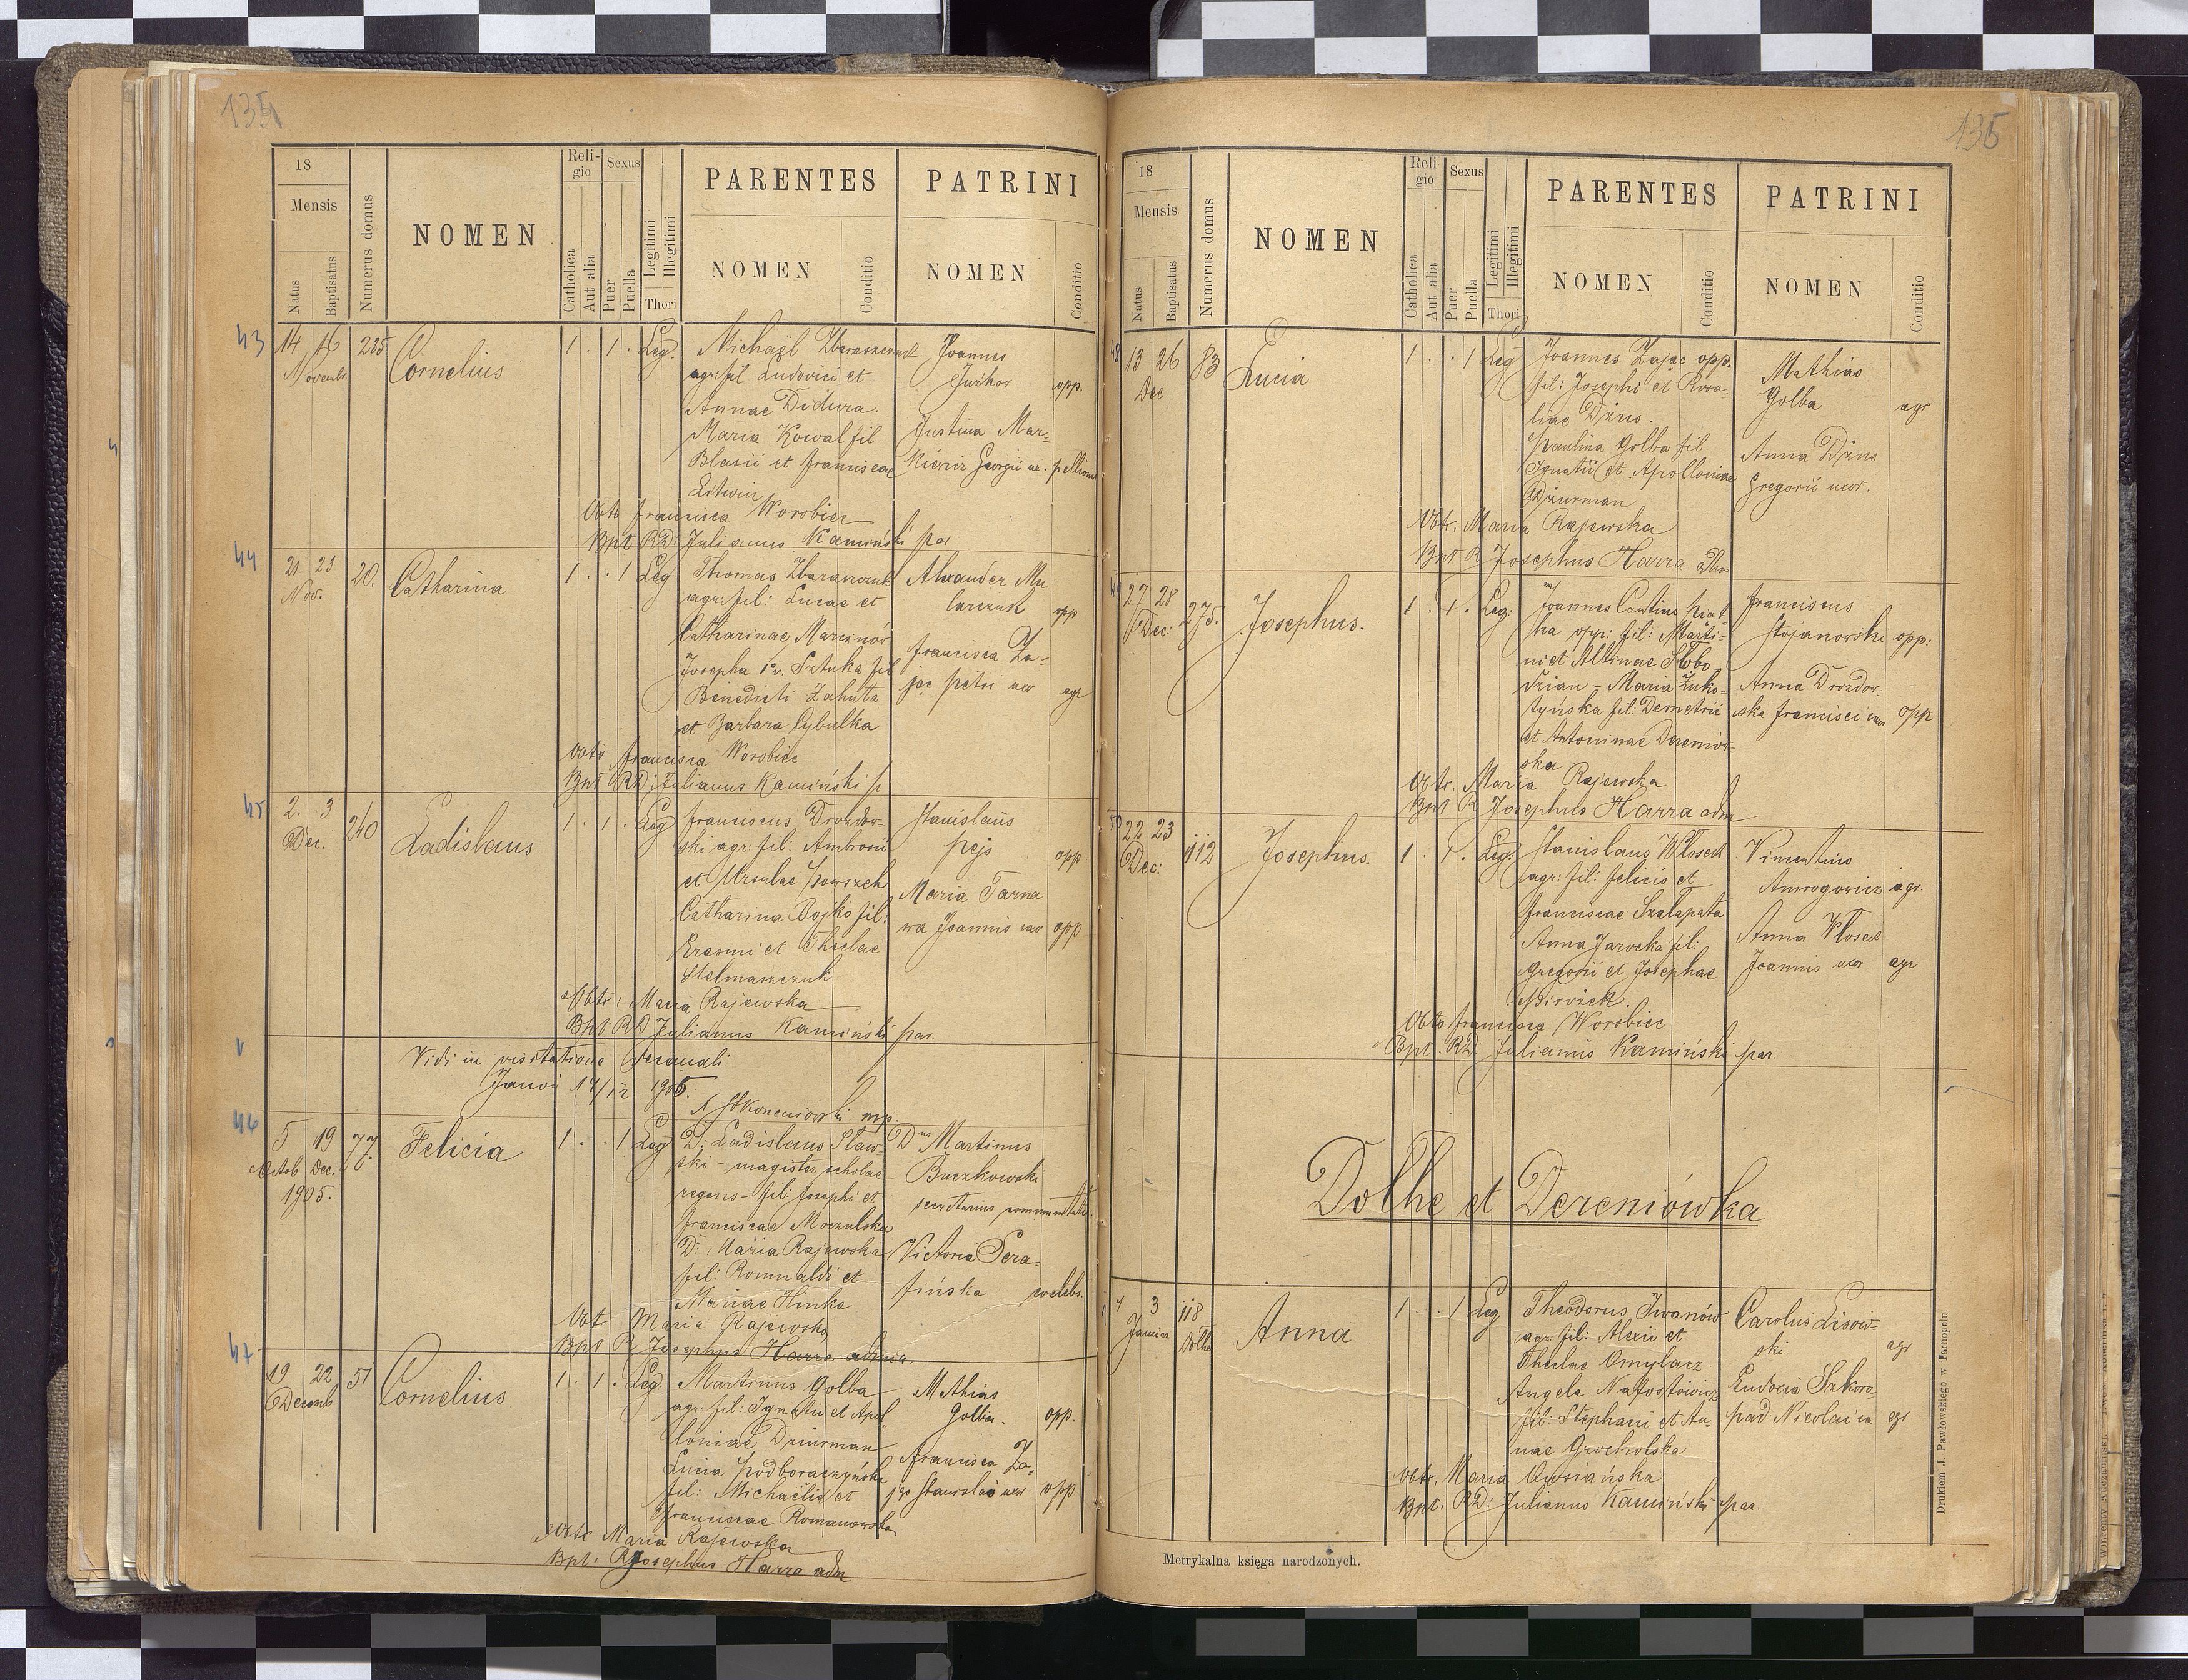 135
18
Mensis
Natus
Baptisatus
Numerus domus
NOMEN
Reli-
gio
Catholica
Aut alia
Sexus
Puer
Puella
Legitimi
Illegitimi
Thori
PARENTES
NOMEN
Conditio
PATRINI
NOMEN
Conditio
43
14 16 235 Cornelius 1 . 1 . Leg.
Novembr
Michaël
agr: fil Ludovici et
Annae Didura.
Maria Kowal fil
Blasii et Franciscae
Litwin
Joannes
opp.
Justina Mar-
Georgii ux.
Obtr Francisca Worobiec
Bpt RD: Julianus Kamiński par
44
21. 23 20. Catharina 1 . . 1 Leg
Nov.
Thomas Zbaraszczuk
agr: fil: Lucae et
Catharinae Marcinów
Josepha 1º v. Sztuka fil
Benedicti Zahuta
et Barbara Cybulka
Alexander Mu
larczuk opp
Francisca Za-
jąc Petri uxor agr
Obtr Francisca Worobiec
Bpt RD: Julianus Kamiński p
45
2. 3 240 Ladislaus 1 . 1 . Leg
Dec.
Franciscus Drozdow-
ski agr: fil: Ambrosii
et Ursulae
Catharina Bojko fil:
Erasmi et Theclae
Stelmaszczuk
Stanislaus
Pejs opp
Maria Tarna
wa Joannis uxor opp
Obtr: Maria Rajewska
Bpt RD Julianus Kamiński par.
Vidi in visitatione decanali
Janów 14/12 1905.
mp.
46
5 19 77. Felicia 1 . . 1 Leg
Octob Dec.
1905.
D: Ladislaus Sław-
ski - magister scholae
regens - fil: Josephi et
Franciscae Moczulska
D: Maria Rajewska
fil: Romualdi et
Mariae Hinke
Dnus Martinus
Buczkowski
secretarius
Victoria Sera-
fińska coelebs.
Obtr Maria Rajewska
Bpt R Josephus Harra
47
19 22 51 Cornelius 1 . 1 . Leg.
Decemb
Martinus Golba
agr: fil: Ignatii et Apol
loniae Dziurman
Lucia Podboraczyńska
fil: Michaëlis et
Franciscae Romanowska
Mathias
Golba. opp.
Francisca Za-
jąc Stanislai uxor opp
Obtr Maria Rajewska
Bpt: R Josephus Harra adm
135
18
Mensis
Natus
Baptisatus
Numerus domus
NOMEN
Reli
gio
Catholica
Aut alia
Sexus
Puer
Puella
Legitimi
Illegitimi
Thori
PARENTES
NOMEN
Conditio
PATRINI
NOMEN
Conditio
48
13 26 83 Lucia 1 . . 1 Leg
Dec
Joannes Zając opp.
fil: Josephi et Rosa-
liae
Paulina Golba fil
Ignatii et Apolloniae
Dziurman
Mathias
Golba agr
Anna
Gregorii uxor.
Obtr. Maria Rajewska
Bpt R Josephus Harra
27 28 275. Josephus. 1 . 1 . Leg.
Dec:
Joannes Cantius
opp: fil: Marti-
ni et Albinae Słobo-
dzian - Maria Żuko-
tyńska fil: Demetrii
et Antoninae Dereniow-
ska
Franciscus
Stojanowski opp:
Anna Drozdow-
ska Francisci uxor opp
Obtr. Maria Rajewska
Bpt R Josephus Harra adm
22 23 112 Josephus. 1 . 1 . Leg.
Dec:
Stanislaus Włosek
agr: fil: Felicis et
Franciscae Szałapata
Anna Jarocka fil:
Gregorii et Josephae
Vincentius
Amrogowicz agr.
Anna Włosek
Joannis uxor agr
Obtr Francisca Worobiec
Bpt: RD Julianus Kamiński par.
Dołhe et Dereniówka
3 118 Anna 1 . . 1 Leg
Januar Dołhe
Theodorus Iwanów
agr: fil: Alexii et
Theclae Omylarz
Angela
fil: Stephani et An-
nae Grocholska
Carolus Lisow-
ski agr
Eudocia Szkoro-
pad Nicolai ux agr
Obtr. Maria Owsiańska
Bpt. RD: Julianus Kamiński par.
Metrykalna księga narodzonych.
Drukiem J. Pawłowskiego w Tarnopolu.